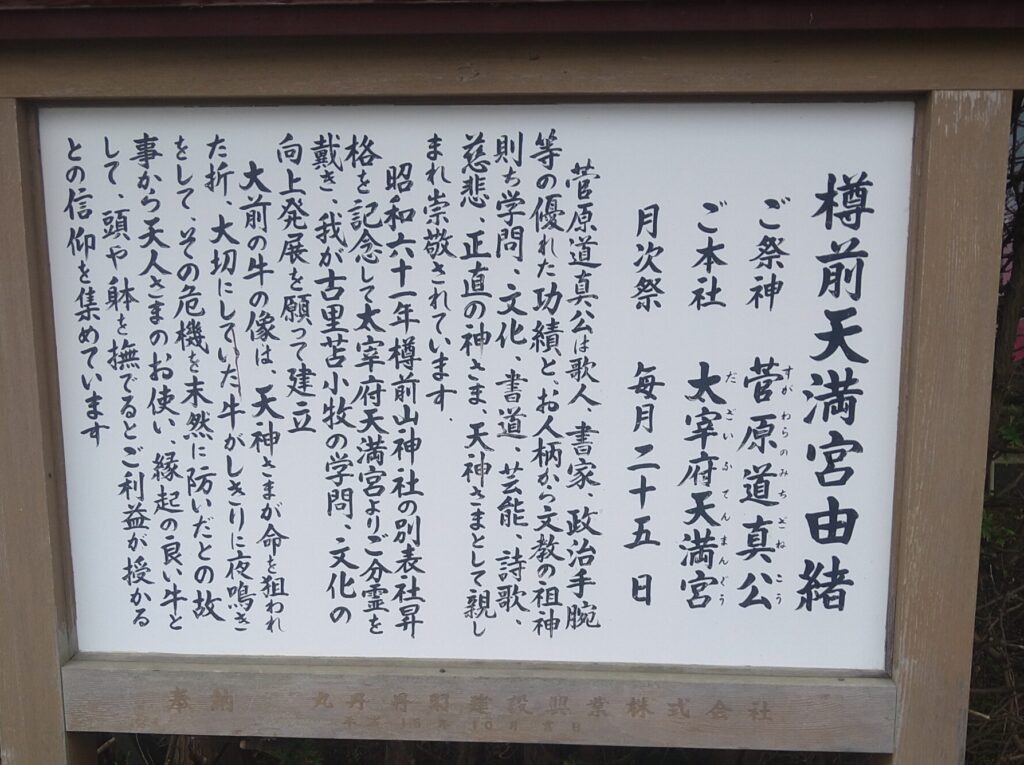 樽前天満宮由緒
ご祭神 菅原道真公
すがわらのみちざねこう
ご本社 太宰府天満宮
だざいふてんまんどう
月次祭 毎月二十五日
菅原道真公は歌人、書家、政治手腕
等の優れた功績と、お人柄から文教の祖神
則ち学問、文化、書道、芸能、詩歌、
慈悲、正直の神さま、天神さまとして親し
まれ崇敬されています.
昭和六十一年樽前山神社の別表社昇
格を記念して太宰府天満宮よりご分霊を
戴き、我が古里苫小牧の学問、文化の
向上発展を願って建立
大前の牛の像は、天神さまが命を狙われ
た折、大切にしていた牛がしきりに夜鳴き
をして、その危機を未然に防いだとの故
事から天人さまのお使い、縁起の良い牛と
して、頭や躰を撫でるとご利益が授かる
との信仰を集めています
奉納 建設興業株式会社
平成15年10月吉日